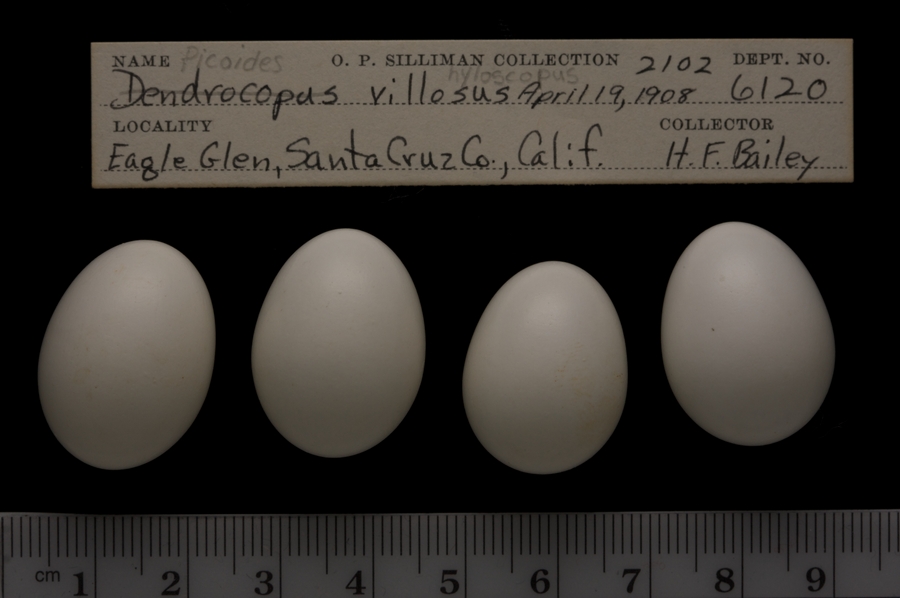 NAME Picoides O. P. SILLIMAN COLLECTION 2102 DEPT. NO.
hyloscopus
Dendrocopus villosus April 19, 1908 6120
LOCALITY COLLECTOR
Eagle Glen, Santa Cruz Co., Calif. H. F. Bailey
cm 1 2 3 4 5 6 7 8 9